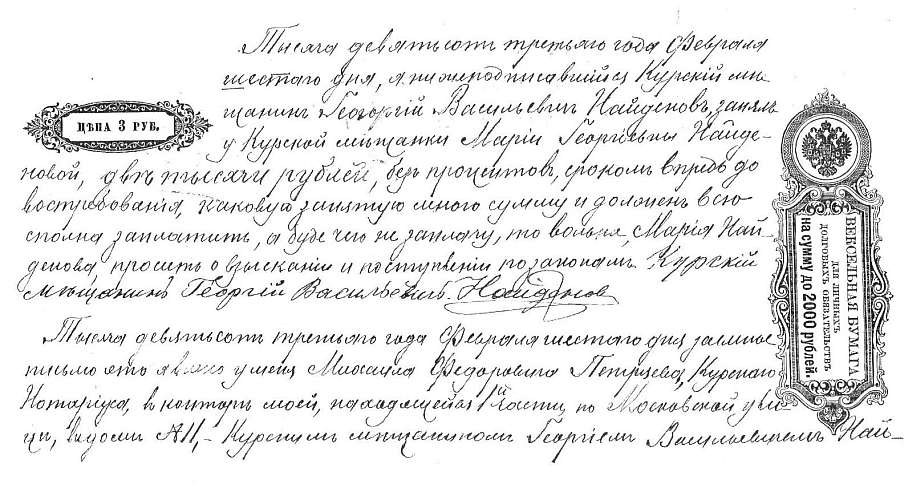 Тысяча девятьсотъ третьяго года Февраля
шестаго дня, я нижеподписавшійся Курскій мѣ-
щанинъ Георгій Васильевичъ Найденовъ, занялъ
ЦѢНА 3 РУБ.
у Курской мѣщанки Маріи Георгіевны Найде-
новой, двѣ тысячи рублей, безъ процентовъ, срокомъ впредь до
востребованія, каковую занятую мною сумму и долженъ всю
сполна заплатить, а буде чего не заплачу, то вольна, Марія Най-
денова, просить о взысканіи и поступленіи по законамъ. Курскій
мѣщанинъ Георгій Васильевичъ Найденов
Тысяча девятьсотъ третьяго года Февраля шестаго дня заемное
письмо это явлено у меня Михаила Федоровича Курскаго
Нотаріуса, въ конторѣ моей, находящейся 1й части, по Московской ули-
цѣ, въ домѣ №11,- Курскимъ мѣщаниномъ Георгіемъ Васильевичемъ Най-
ВЕКСЕЛЬНАЯ БУМАГА
для личныхъ
долговыхъ обязательствъ
на сумму до 2000 рублей.